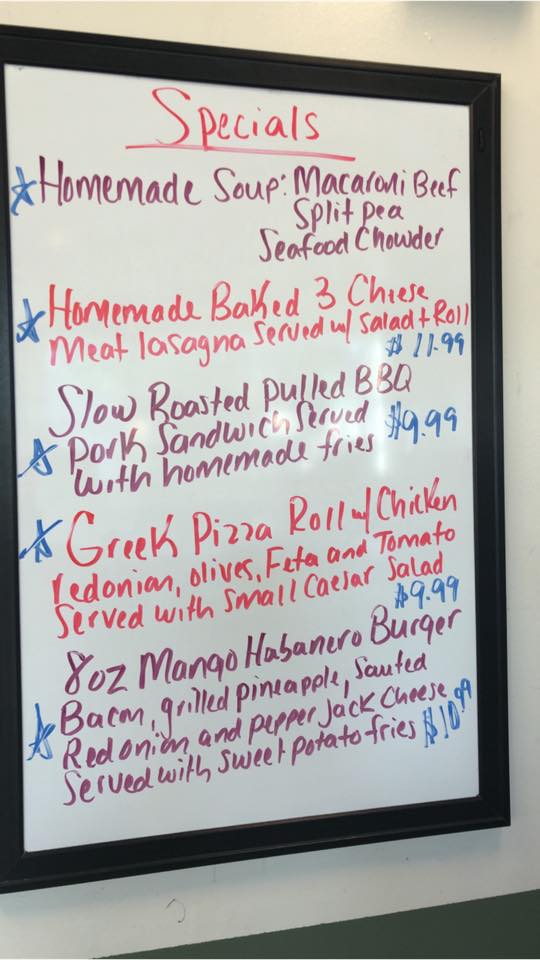 Specials
Homemade Soup: Macaroni Beef
Split pea
Seafood Chowder
Homemade Baked 3 Cheese
Meat lasagna served w/ salad + Roll
$ 11.99
Slow Roasted pulled BBQ
Pork Sandwich served $9.99
with homemade fries
Greek Pizza Roll w/ Chicken
redonion, olives, Feta and Tomato
Served with small Caesar Salad
$9.99
8oz Mango Habanero Burger
Bacon, grilled pineapple, sauted
Redonion and pepper jack cheese
Served with sweet potato fries $10.99